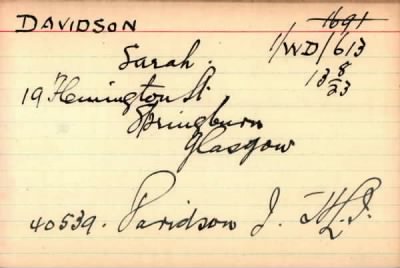 DAVIDSON 1691
Sarah. 1/WD/613
13 8/23
19 Flemington St.
Springburn
Glasgow
40539. Davidson J. H.L.I.